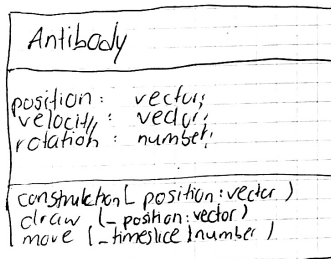 Antibody
position : vector;
velocity : vector;
rotation : number;
construktion(_position:vector)
draw (_position:vector)
move (_timeslice:number)